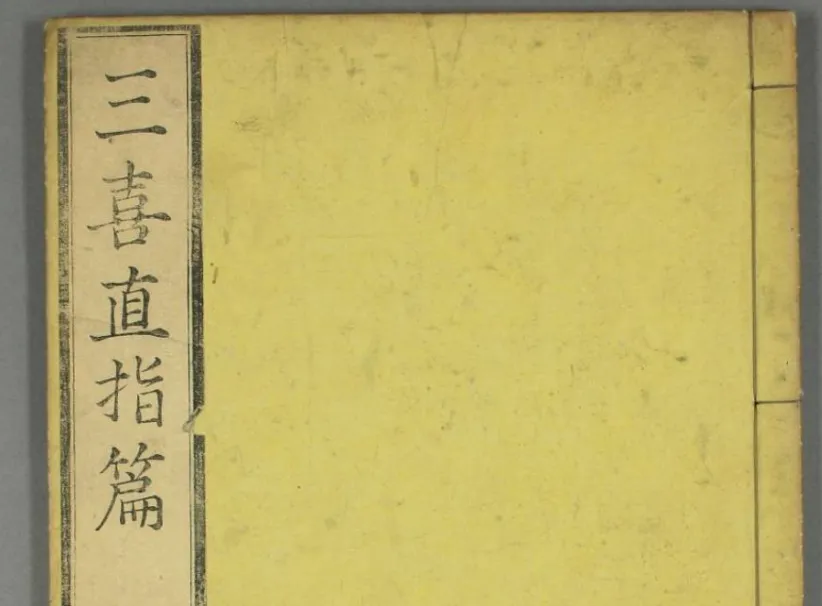 三喜直指篇